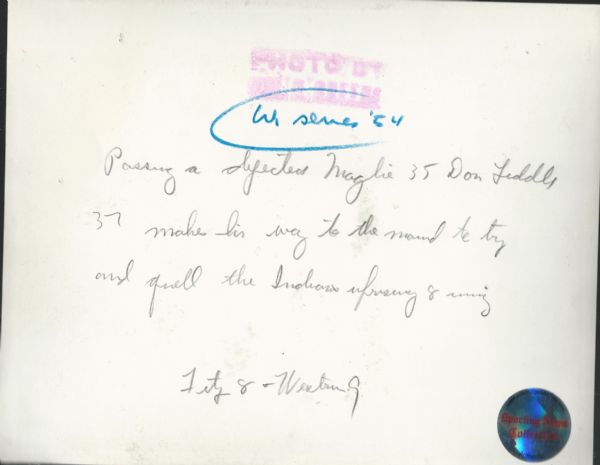 W. series '54
Passing a dejected Maglie 35 Don Liddle
37 makes his way to the mound to try
and quell the Indians uprising 8 inning
Fitz 8 -
Sporting News
Collection